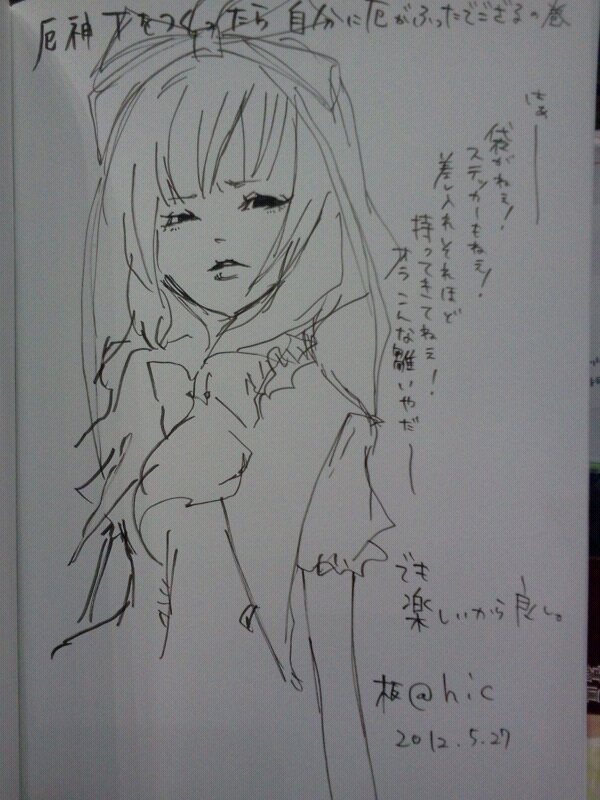 厄神Tをつくったら自分に厄がふったでござるの巻
はぁー
袋がねぇ!
ステッカーもねぇ!
差し入れそれほど
持ってきてねぇ!
オラこんな雛いやだー
でも
楽しいから良し。
板@hic
2012.5.27